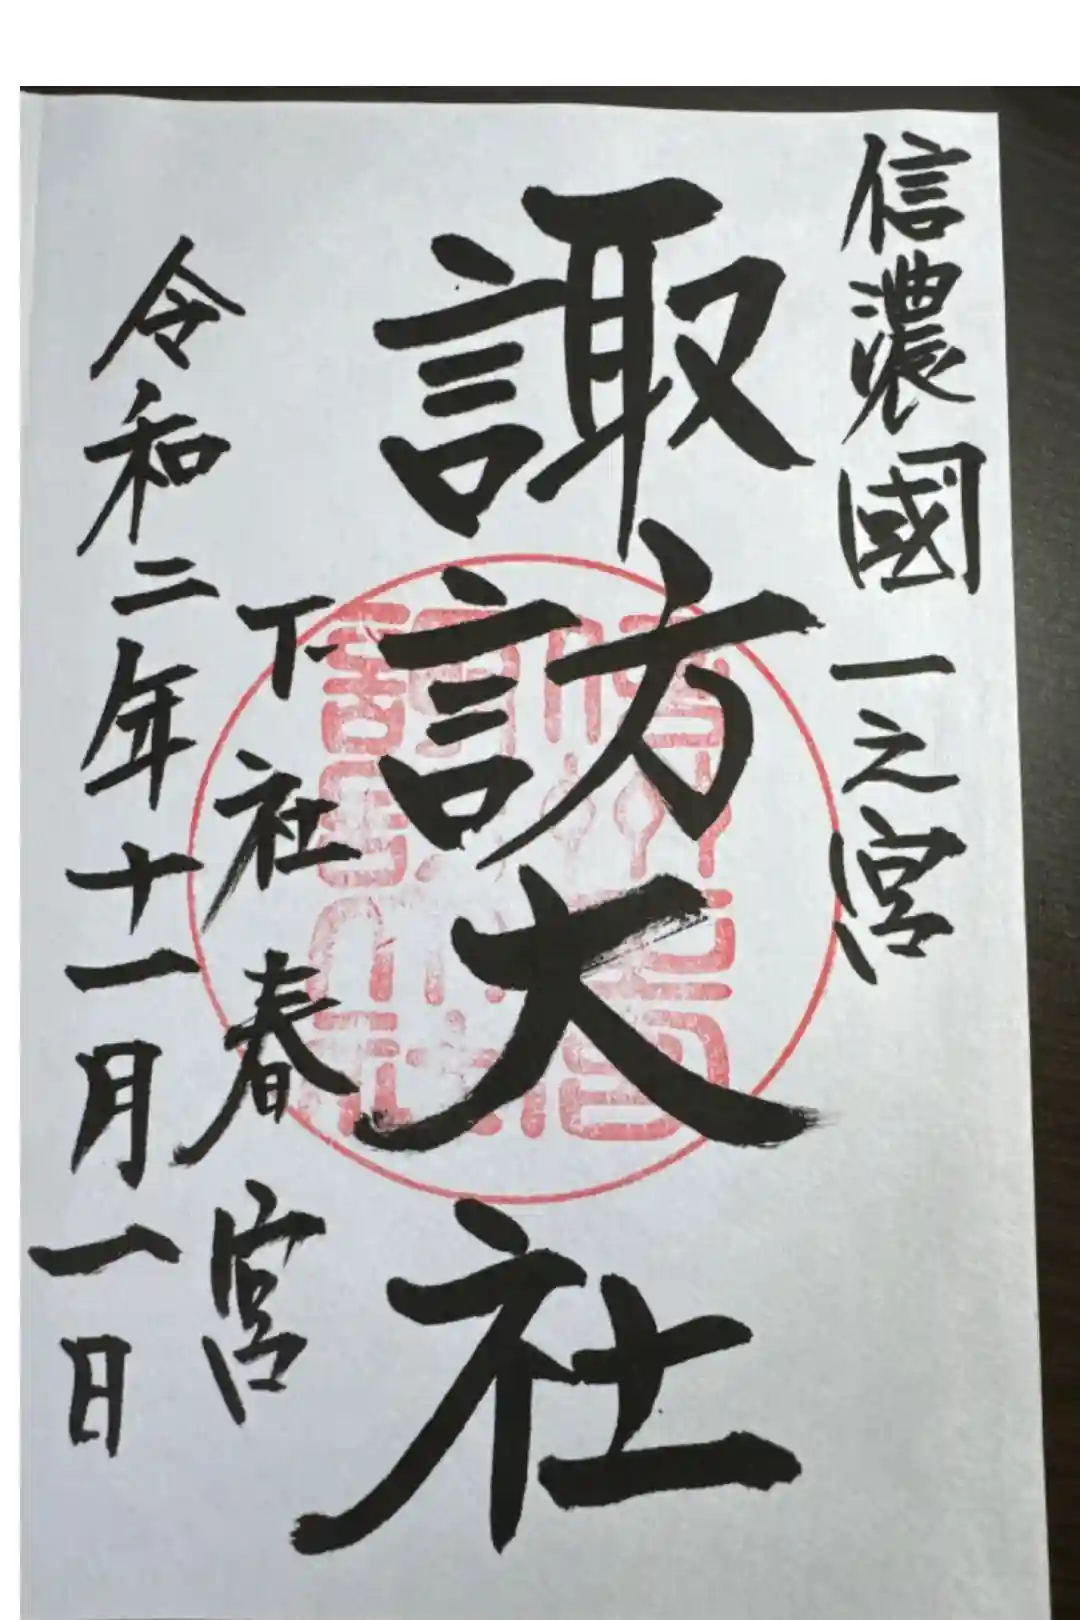 信濃國一之宮
諏訪大社
下社春宮
令和二年十一月一日